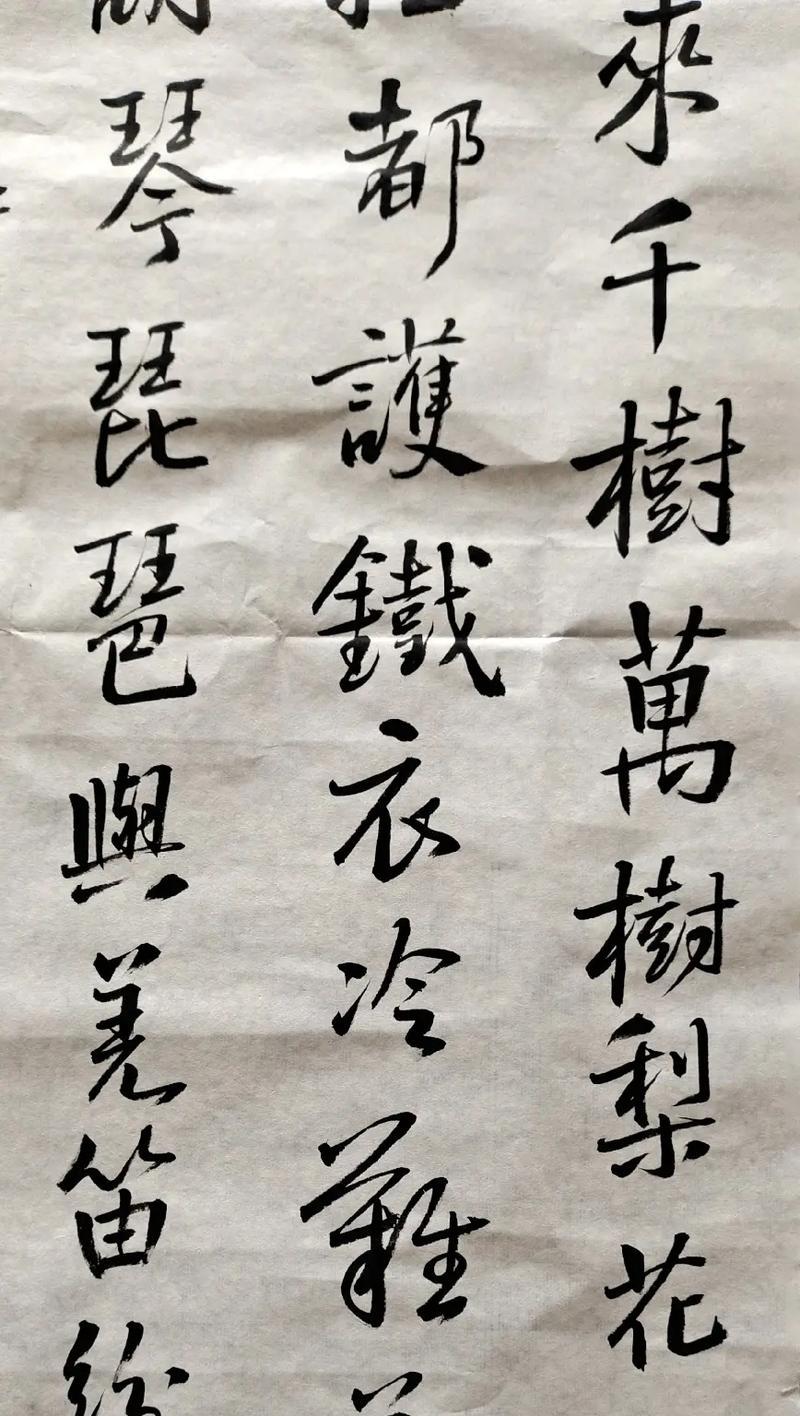 來千樹萬樹梨花
都護鐵衣冷難
琴琵琶與羌笛紛